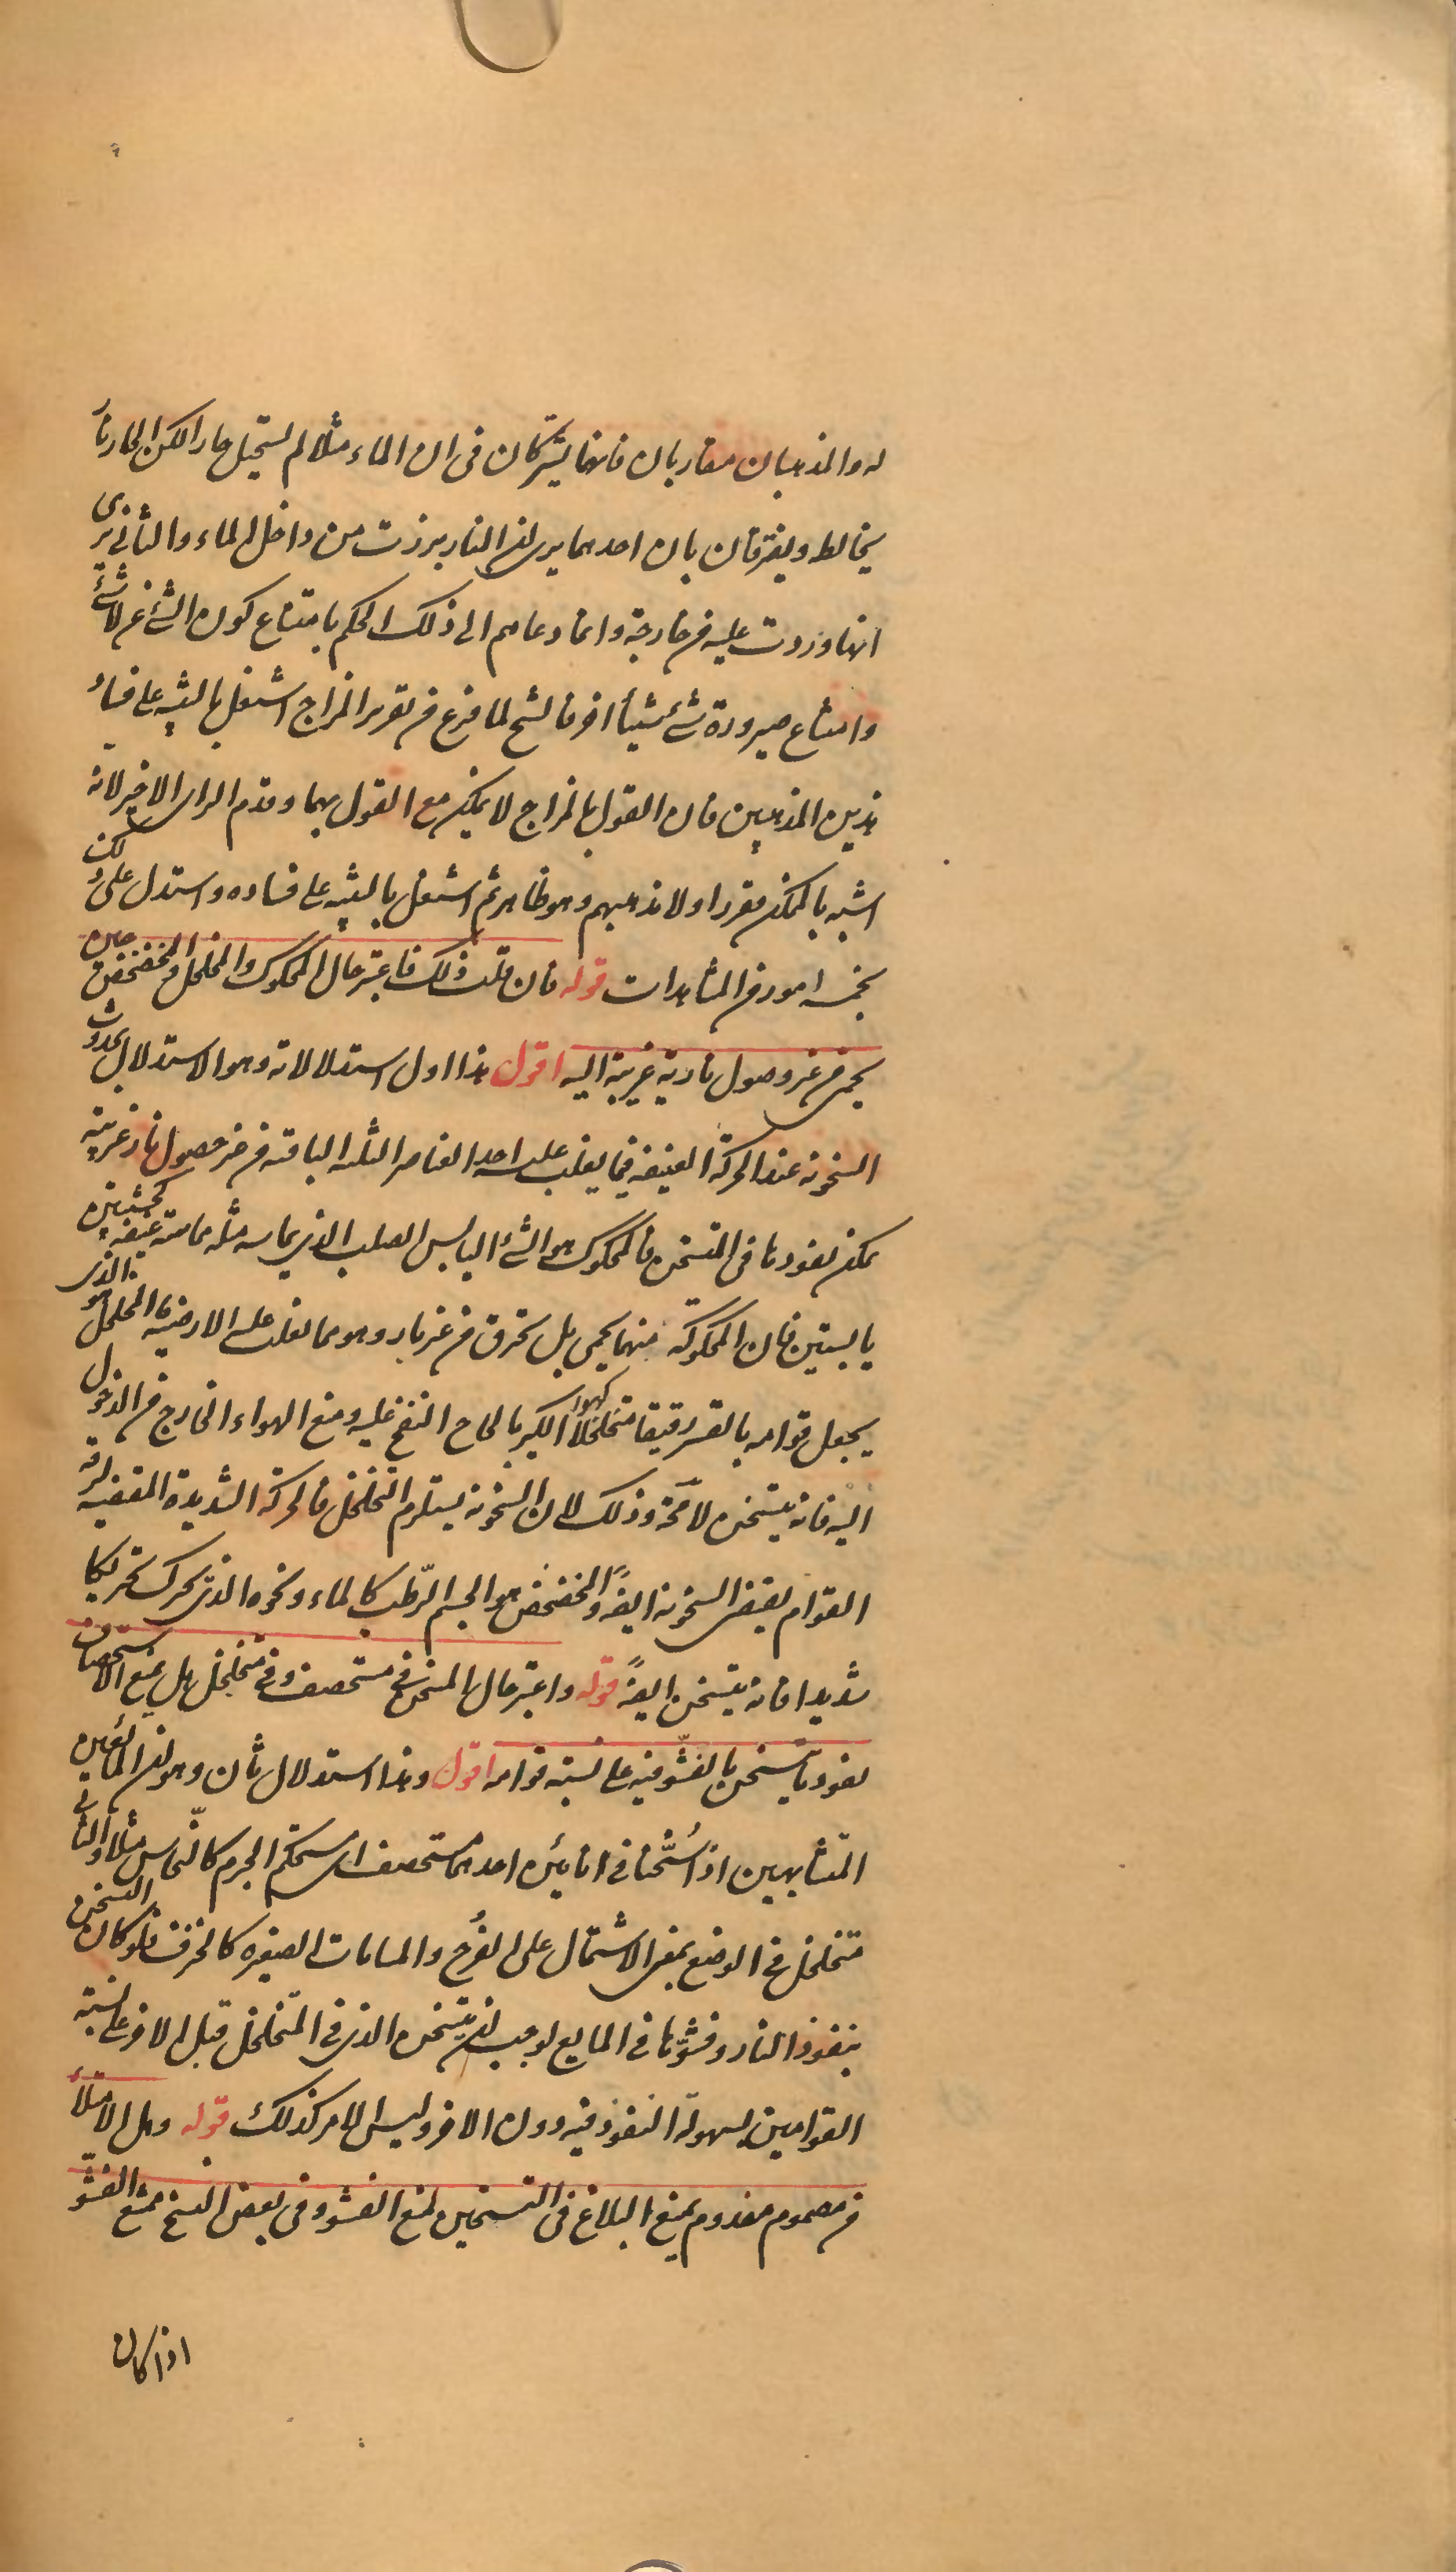 له والمذهبان متقاربان فانهما يشتركان فى ان الماء مثلا لم يستحيل حارا لكن الحار نارٌ
يخالطه ويفترقان بان احدهما يرى ان النار برزت من داخل الماء والثانى يرى
انها وردت عليه من خارجه وانما دعاهم الى ذلك الحكم بامتناع كون الشئ عن لاشئ
وامتناع صيرورة شئ شيئاً اخر فالشيخ لما فرغ من تقرير المزاج اشتغل بالتنبيه على فساد
هذين المذهبين فان القول بالمزاج لا يمكن مع القول بهما وقدم الراى الاخير لانه
اشبه بالممكن فقرر اولا مذهبهم وهو ظاهر ثم اشتغل بالتنبيه على فساده واستدل على ذلك
بخمسه امور من المشاهدات قوله فان قلت ذلك فاعتبر حال المحكوك والمخلخل والمخضخض حين
يحمى من غير وصول نارية غريبة اليه اقول هذا اول استدلالاته وهو الاستدلال بحدوث
السخونه عند الحركة العنيفه فيما يغلب عليه احد العناصر الثلثه الباقيه من غير حصول نار غريبه
يمكن نفوذها فى المتسخن فالمحكوك هو الشئ اليابس الصلب الذى يماسه مثله مماسة عنيفه كخشبتين
يابستين فان المحكوكه منهما يحمى بل يحترق من غير نار وهو مما يغلب عليه الارضيه والمخلخل هو الذى
يجعل قوامه بالقسر رقيقا متخلخلا كهواء الكير بالحاح النفخ عليه ومنع الهواء الخارج من الدخول
اليه فانه يتسخن لا محة وذلك لان السخونه يستلزم التخلخل فالحركة الشديدة المقتضيه لرقه
القوام يقتضى السخونه ايضاً والمخضخض هو الجسم الرّطب كالماء ونحوه الذى يحرك تحريكا
شديدا فانه يتسخن ايضاً قوله واعتبر حال المتسخن فى مستحصف وفى متخلخل هل يمنع الاستحصاف
نفوذ ما يتسخن بالفشوّ فيه على نسبة قوامه اقول وهذا استدلال ثان وهو ان المائعين
المتشابهين اذا سُخّنا فى انائين احدهما مستحصف اى مستحكم الجرم كالنحاس مثلا والثانى
متخلخل فى الوضع بمعنى الاشتمال على الفرج والمسامات الصغيره كالخزف فلو كان التسخن
بنفوذ النار وفشوّها فى المايع لوجب ان يتسخن الذى فى المتخلخل قبل الاخر على نسبة
القوامين لسهولة النفوذ فيه دون الاخر وليس الامر كذلك قوله وهل الامتلاء
من مصموم مفدوم يمنع البلاغ فى التسخين لمنع الفشو وفى بعض النسخ يمتنع الفشو
اذا كان